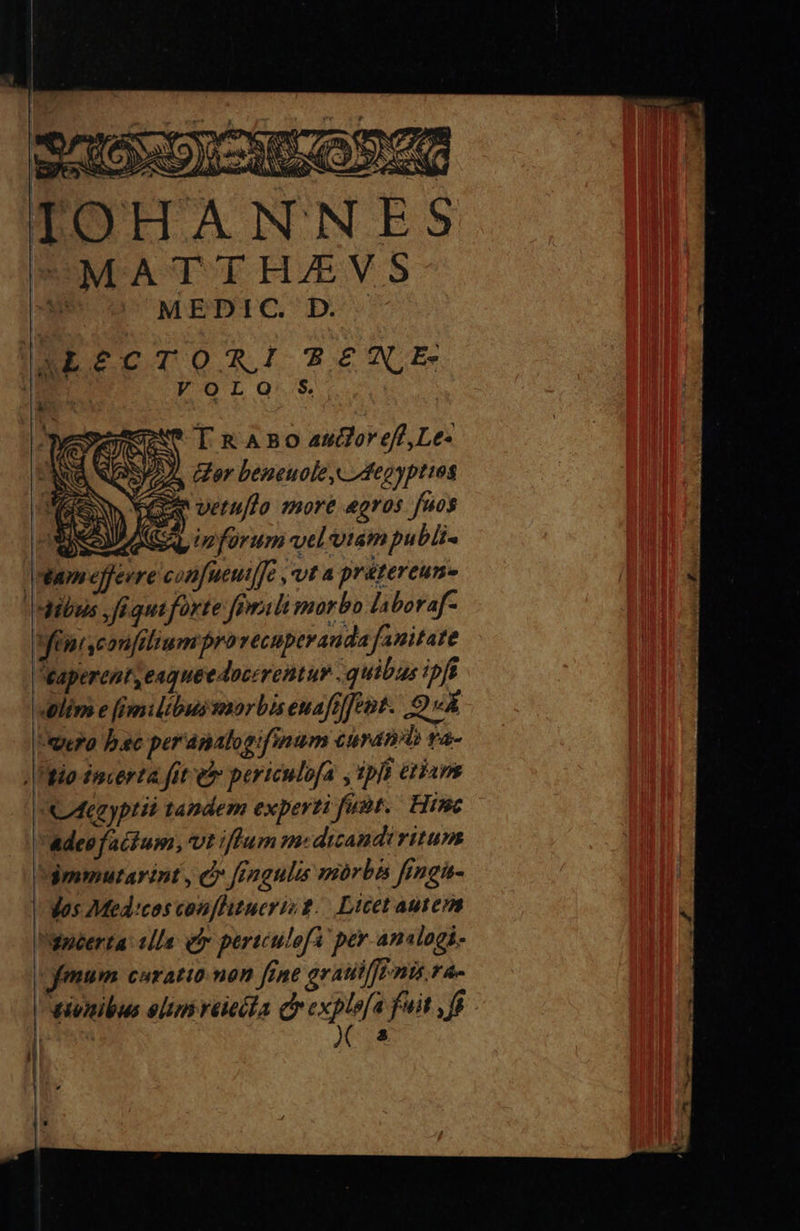 IOHANNES
MATTHÆVS
MEDIC. D.
LECTORI BENE-
VOLO S.
TRABO auctor est, Le-
ctor beneuole, Aegyptios
vetusto more ægros suos
in forum vel viam publi-
cam efferre consueuisse, vt a prætereun-
tibus, si qui forte simili morbo laboras-
sent, consilium pro recuperanda sanitate
caperent, eaque edocerentur quibus ipsi
olim e similibus morbis euasissent. QuÆ
vero hæc per analogismum curandi ra-
tio incerta sit & periculosa, ipsi etiam
Aegyptii tandem experti sunt. Hinc
adeo factum, vt istum medicandi ritum
immutarint, & singulis morbis singu-
los Medicos constituerint. Licet autem
incerta illa & periculosa per analogi-
smum curatio non sine grauissimis ra-
tionibus olim reiecta & explosa fuit, si
)( 2